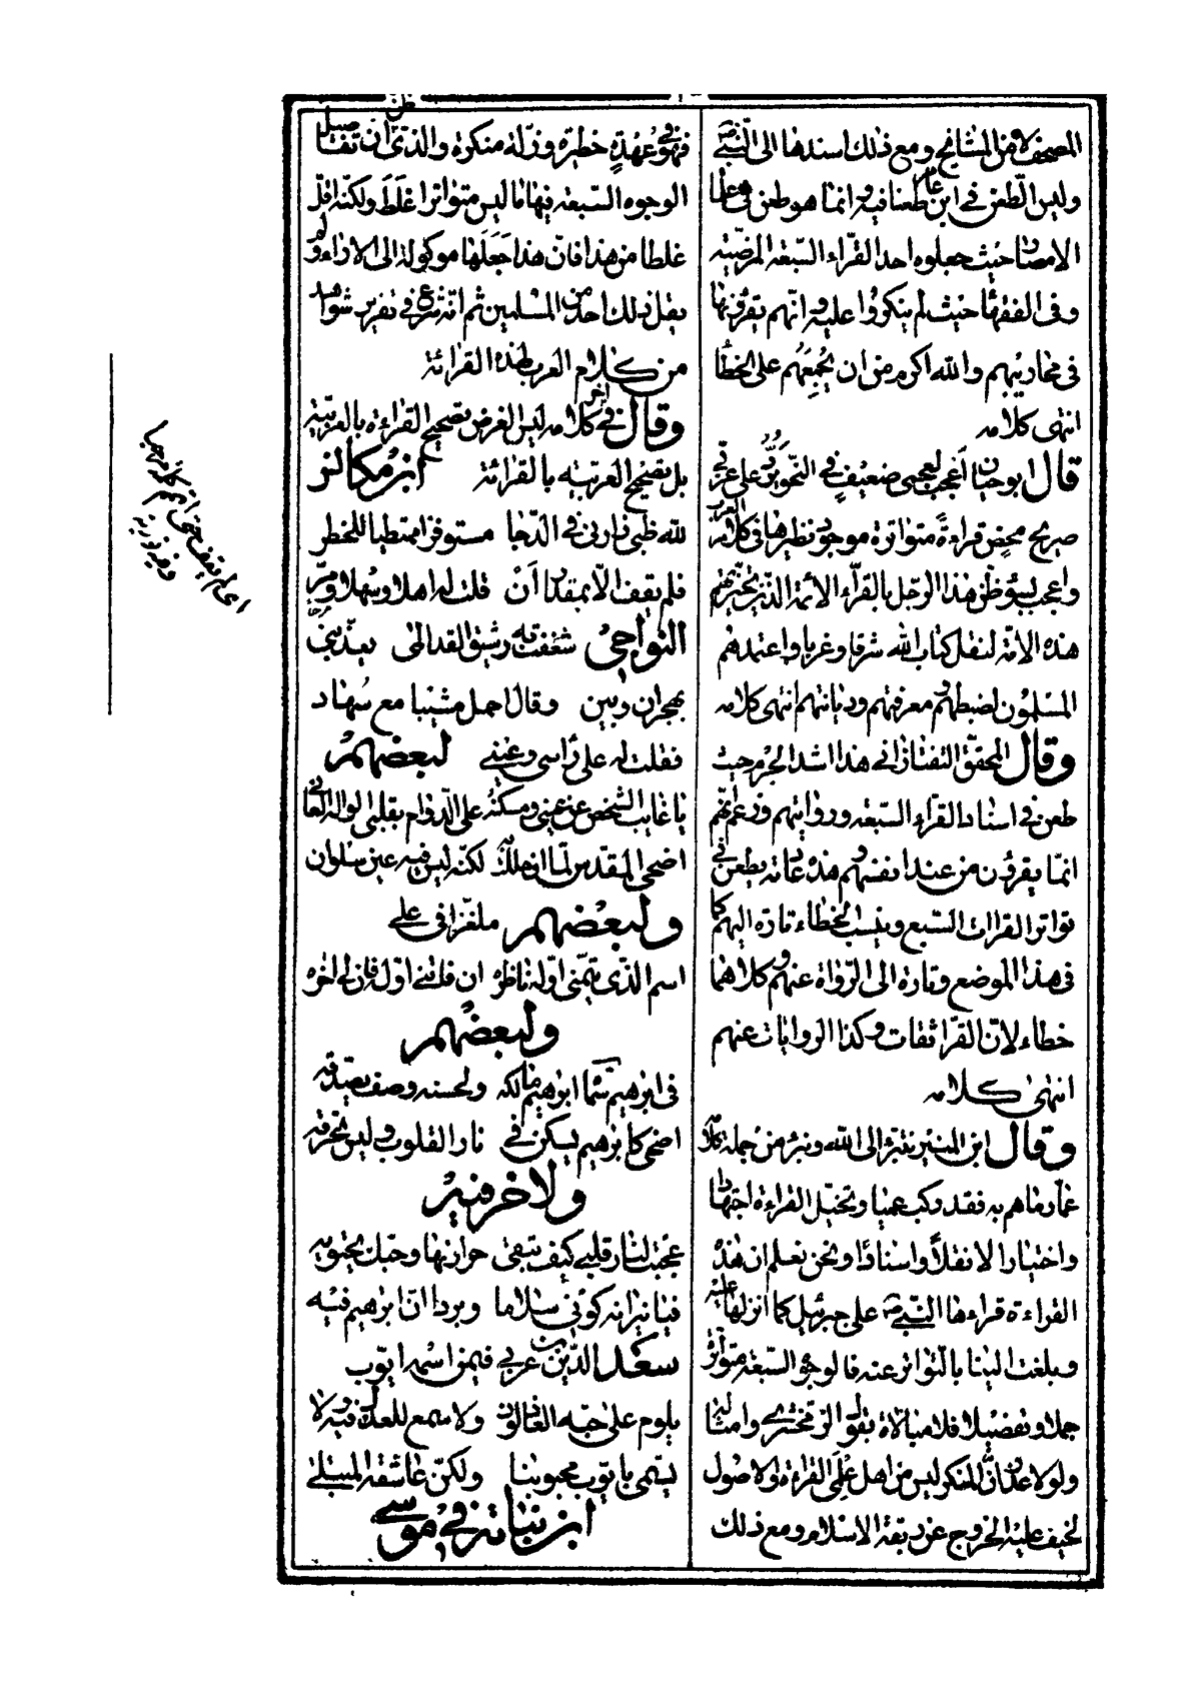 المصحف لا من المشايخ ومع ذلك اسندها الى النبي ص
وليس الطعن في ابن عامر طعنا فيه وانما هو طعن في علماء
الامصار حيث جعلوه احد القراء السبعة المرضية
وفى الفقهاء حيث لم ينكروا عليه وانهم يقرؤنها
فى محاريبهم والله اكرم من ان يجمعهم على الخطأ
انتهى كلامه
قال ابو حيان أعجب لعجمى ضعيف في النحو يرد على عربي
صريح محض قراءةً متواترة موجود نظيرها في كلام العرب
واعجب لسوء ظن هذا الرجل بالقراء الائمة الذين تخيرتهم
هذه الامة لنقل كتاب الله شرقا وغربا واعتمدهم
المسلمون لضبطهم ومعرفتهم وديانتهم انتهى كلامه
وقال المحقق التفتازانى هذا اشد الجرم حيث
طعن في اسناد القراء السبعة وروايتهم وزعم انهم
انما يقرؤن من عند انفسهم وهذه عادته يطعن في
تواتر القراات السبع وينسب الخطاء تارة اليهم كما
فى هذا الموضع وتارة الى الرواة عنهم وكلاهما
خطاء لان القراء ثقات وكذا الروايات عنهم
انتهى كلامه
وقال ابن المنير نتبرء الى الله ونبرء من جملة كلامه
عما رماهم به فقد ركب عميا وتخيل القراءة اجتهادا
واختيارا لا نقلاً واسنادًا ونحن نعلم ان هذه
القراءة قراءها النبي ص على جبرئيل كما انزلها عليه
وبلغت الينا بالتواتر عنه فالوجوه السبعة متواترة
جملا وتفصيلا فلا مبالاة بقول الزمخشري وامثاله
ولولا عذر ان المنكر ليس من اهل علمى القراءة والاصول
لخيف عليه الخروج عن ربقة الاسلام ومع ذلك
فهو في عُهدةٍ خطيرة وزلة منكرة والذى ظن ان تفاصيل
الوجوه السبعة فيها ما ليس متواترا غلط ولكنه اقل
غلطا من هذا فان هذا جعلها موكولة الى الاراء ولم
يقل ذلك احد من المسلمين ثم انه شرع في تقرير شواهد
من كلام العرب لهذه القرائة
وقال في اخر كلامه ليس الغرض تصحيح القراءة بالعربية
بل تصحيح العربية بالقرائة ابن مكانس
لله ظبى زارنى في الدجا مستوفزا ممتطيا للخطر
فلم يقف الا بمقدار أنْ قلت له اهلا وسهلا ومر
النواجي شغفت به رشيق القد المى يعذبني
بهجران وبين وقال احمل مشيبا مع سهاد
فقلت له على رأسى وعيني لبعضهم
يا غايب الشخص عن عينى ومسكنه على الدوام بقلبى الواله العانى
اضحى المقدس لما ان حللت به لكنه ليس فيه عين سلوان
ولبعضهم ملغزا فى على
اسم الذى تيمنى اوله ناظره ان فاتني اوله فان لى اخره
ولبعضهم
فى ابرهيم سما ابرهيم مالكه ولحسنه وصف يصدقه
اضحى كابرهيم يسكن في نار القلوب وليس تحرقه
ولاخر فيه
عجبت لنار قلبي كيف تبقى حرارتها وحبك يحتويه
فيا نيرانه كونى سلاما وبردا ان ابرهيم فيه
سعد الدين بن عربي فيمن اسمه ايوب
يلوم على حبه العاذلون ولا سمع للعذل فيه ولا
يسمى بايوب محبوبنا ولكن عاشقه المبتلى
ابن نباته في موسى
اى لم يقف حتى اتم كلامى حبا